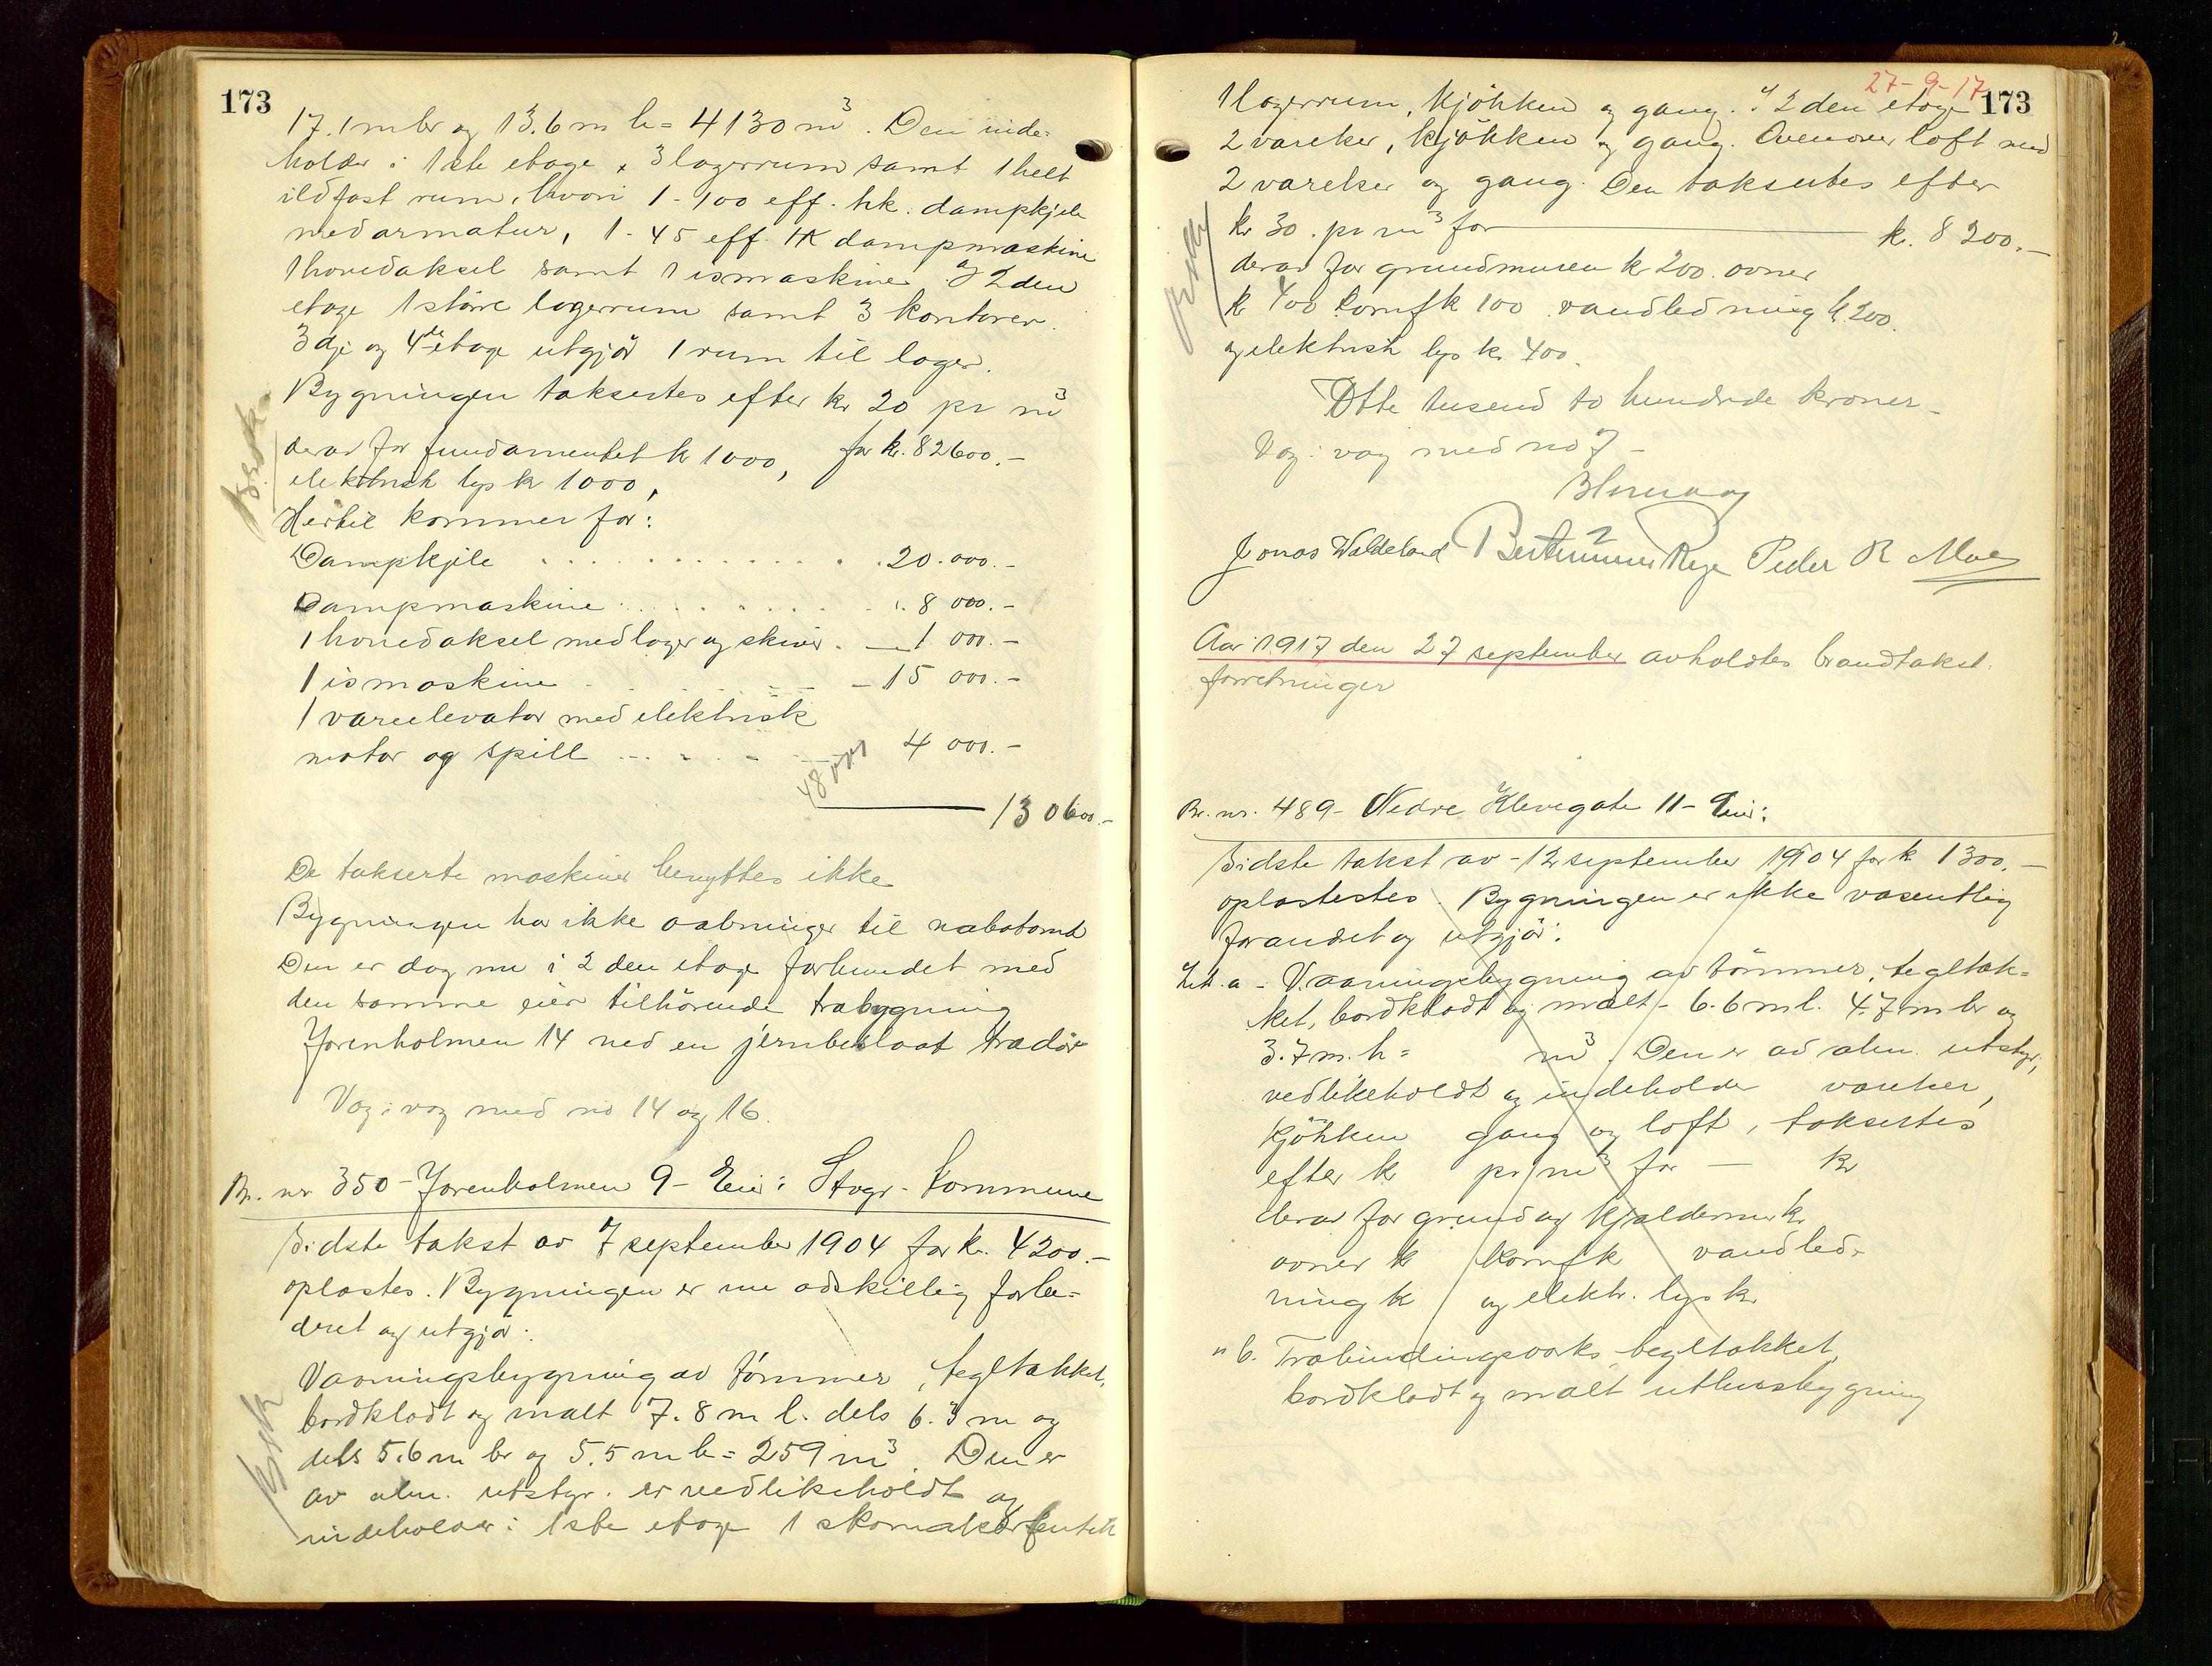 173
17.1 m br og 13.6 m h = 4130 m³. Den inde-
holder i 1ste etage, 3 lagerrum samt 1 helt
ildfast rum, hvori 1 - 100 eff. hk. dampkjele
med armatur, 1 - 45 eff. HK dampmaskine
1 hovedaksel samt 1 ismaskine. I 2den
etage 1 större lagerrum samt 3 kontorer.
3dje og 4de etage utgjör 1 rum til lager.
Bygningen taksertes efter kr 20 pr m³
for kr. 82600.-
derav for fundamentet kr 1000,
elektrisk lys kr 1000,
Hertil kommer for:
Dampkjele . . . . . . . . . . . 20.000.-
Dampmaskine . . . . . . . . 8 000.-
1 hovedaksel med lager og skiver. — 1 000.-
1 ismaskine - - - - 15 000.-
1 vareelevator med elektrisk
motor og spill - - - - 4 000.-
48000
130600.-
De takserte maskiner benyttes ikke
Bygningen har ikke aabninger til nabotomt
Den er dog nu i 2den etage forbundet med
den samme eier tilhörende træbygning
Jorenholmen 14 ved en jernbeslaat trædör
Væg i væg med no 14 og 16.
Br. nr 350 - Jorenholmen 9 - Eier: Stvgr. kommune
Sidste takst av 7 september 1904 for kr. 4200.-
oplæstes. Bygningen er nu adskillig forbe-
dret og utgjör:
Vaaningsbygning av tömmer, tegltækket,
bordklædt og malt 7.8 m l. dels 6.3 m og
dels 5.6 m br og 5.5 m h = 259 m³. Den er
av alm. utstyr. er vedlikeholdt og
indeholder: 1ste etage 1 skomakerbutik
27-9-17
173
1 lagerrum, kjökken og gang. I 2den etage
2 værelser, kjökken og gang. Ovenover loft med
2 værelser og gang. Den taksertes efter
kr 30. pr m³ for — kr. 8200.-
derav for grundmuren kr 200. ovner
kr 400 komf kr 100 vandledning kr 200.
og elektrisk lys kr. 400.
Otte tusend to hundrede kroner -
Væg i væg med no 7 -
Jonas Waldeland Peder R Moe
Aar 1917 den 27 september avholdtes brandtakst-
forretninger
Br. nr. 489 - Nedre Klevegate 11 - Eier:
Sidste takst av - 12 september 1904 for kr 1300.-
oplæstes. Bygningen er ikke væsentlig
forandret og utgjör:
Litt. a - Vaaningsbygning av tömmer, tegltæk-
ket, bordklædt og malt - 6.6 m l. 4.7 m br og
3.7 m. h = m³. Den er av alm. utstyr,
vedlikeholdt og indeholder værelser,
kjökken gang og loft, taksertes
efter kr pr m³ for — kr
derav for grund og kjeldermur kr
ovner kr komf kr vandled-
ning kr og elektr. lys kr
" b. Træbindingsværks tegltækket,
bordklædt og malt uthusbygning